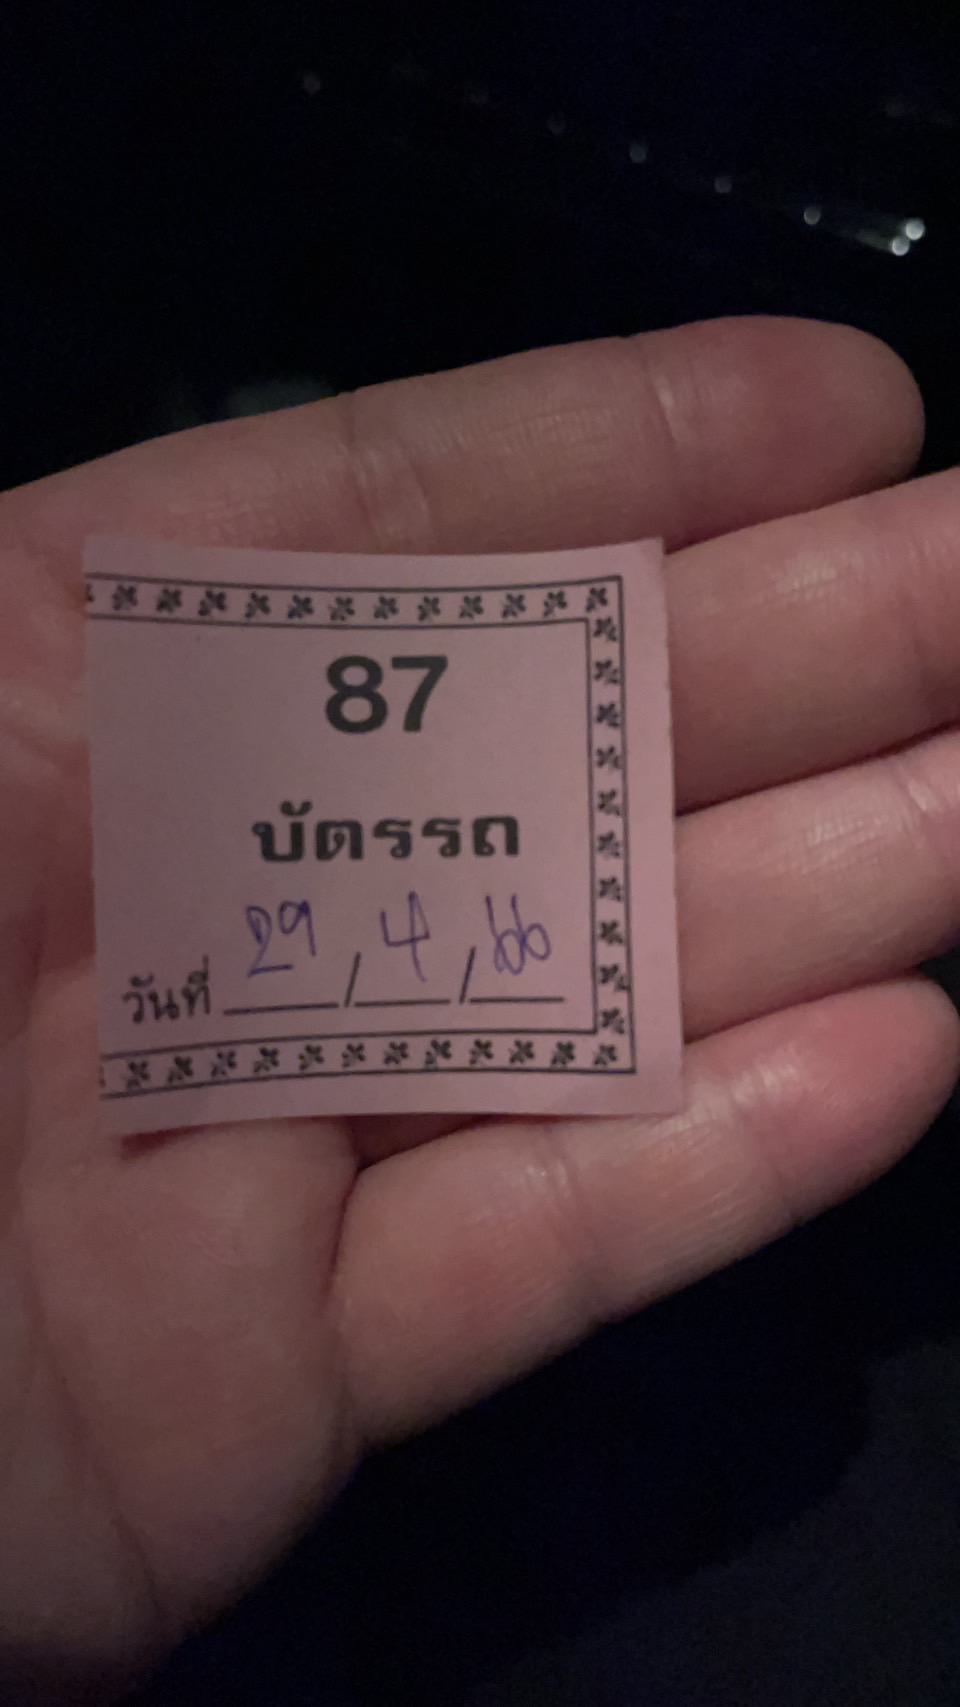 87
บัตรรถ
วันที่ 29 / 4 / 66